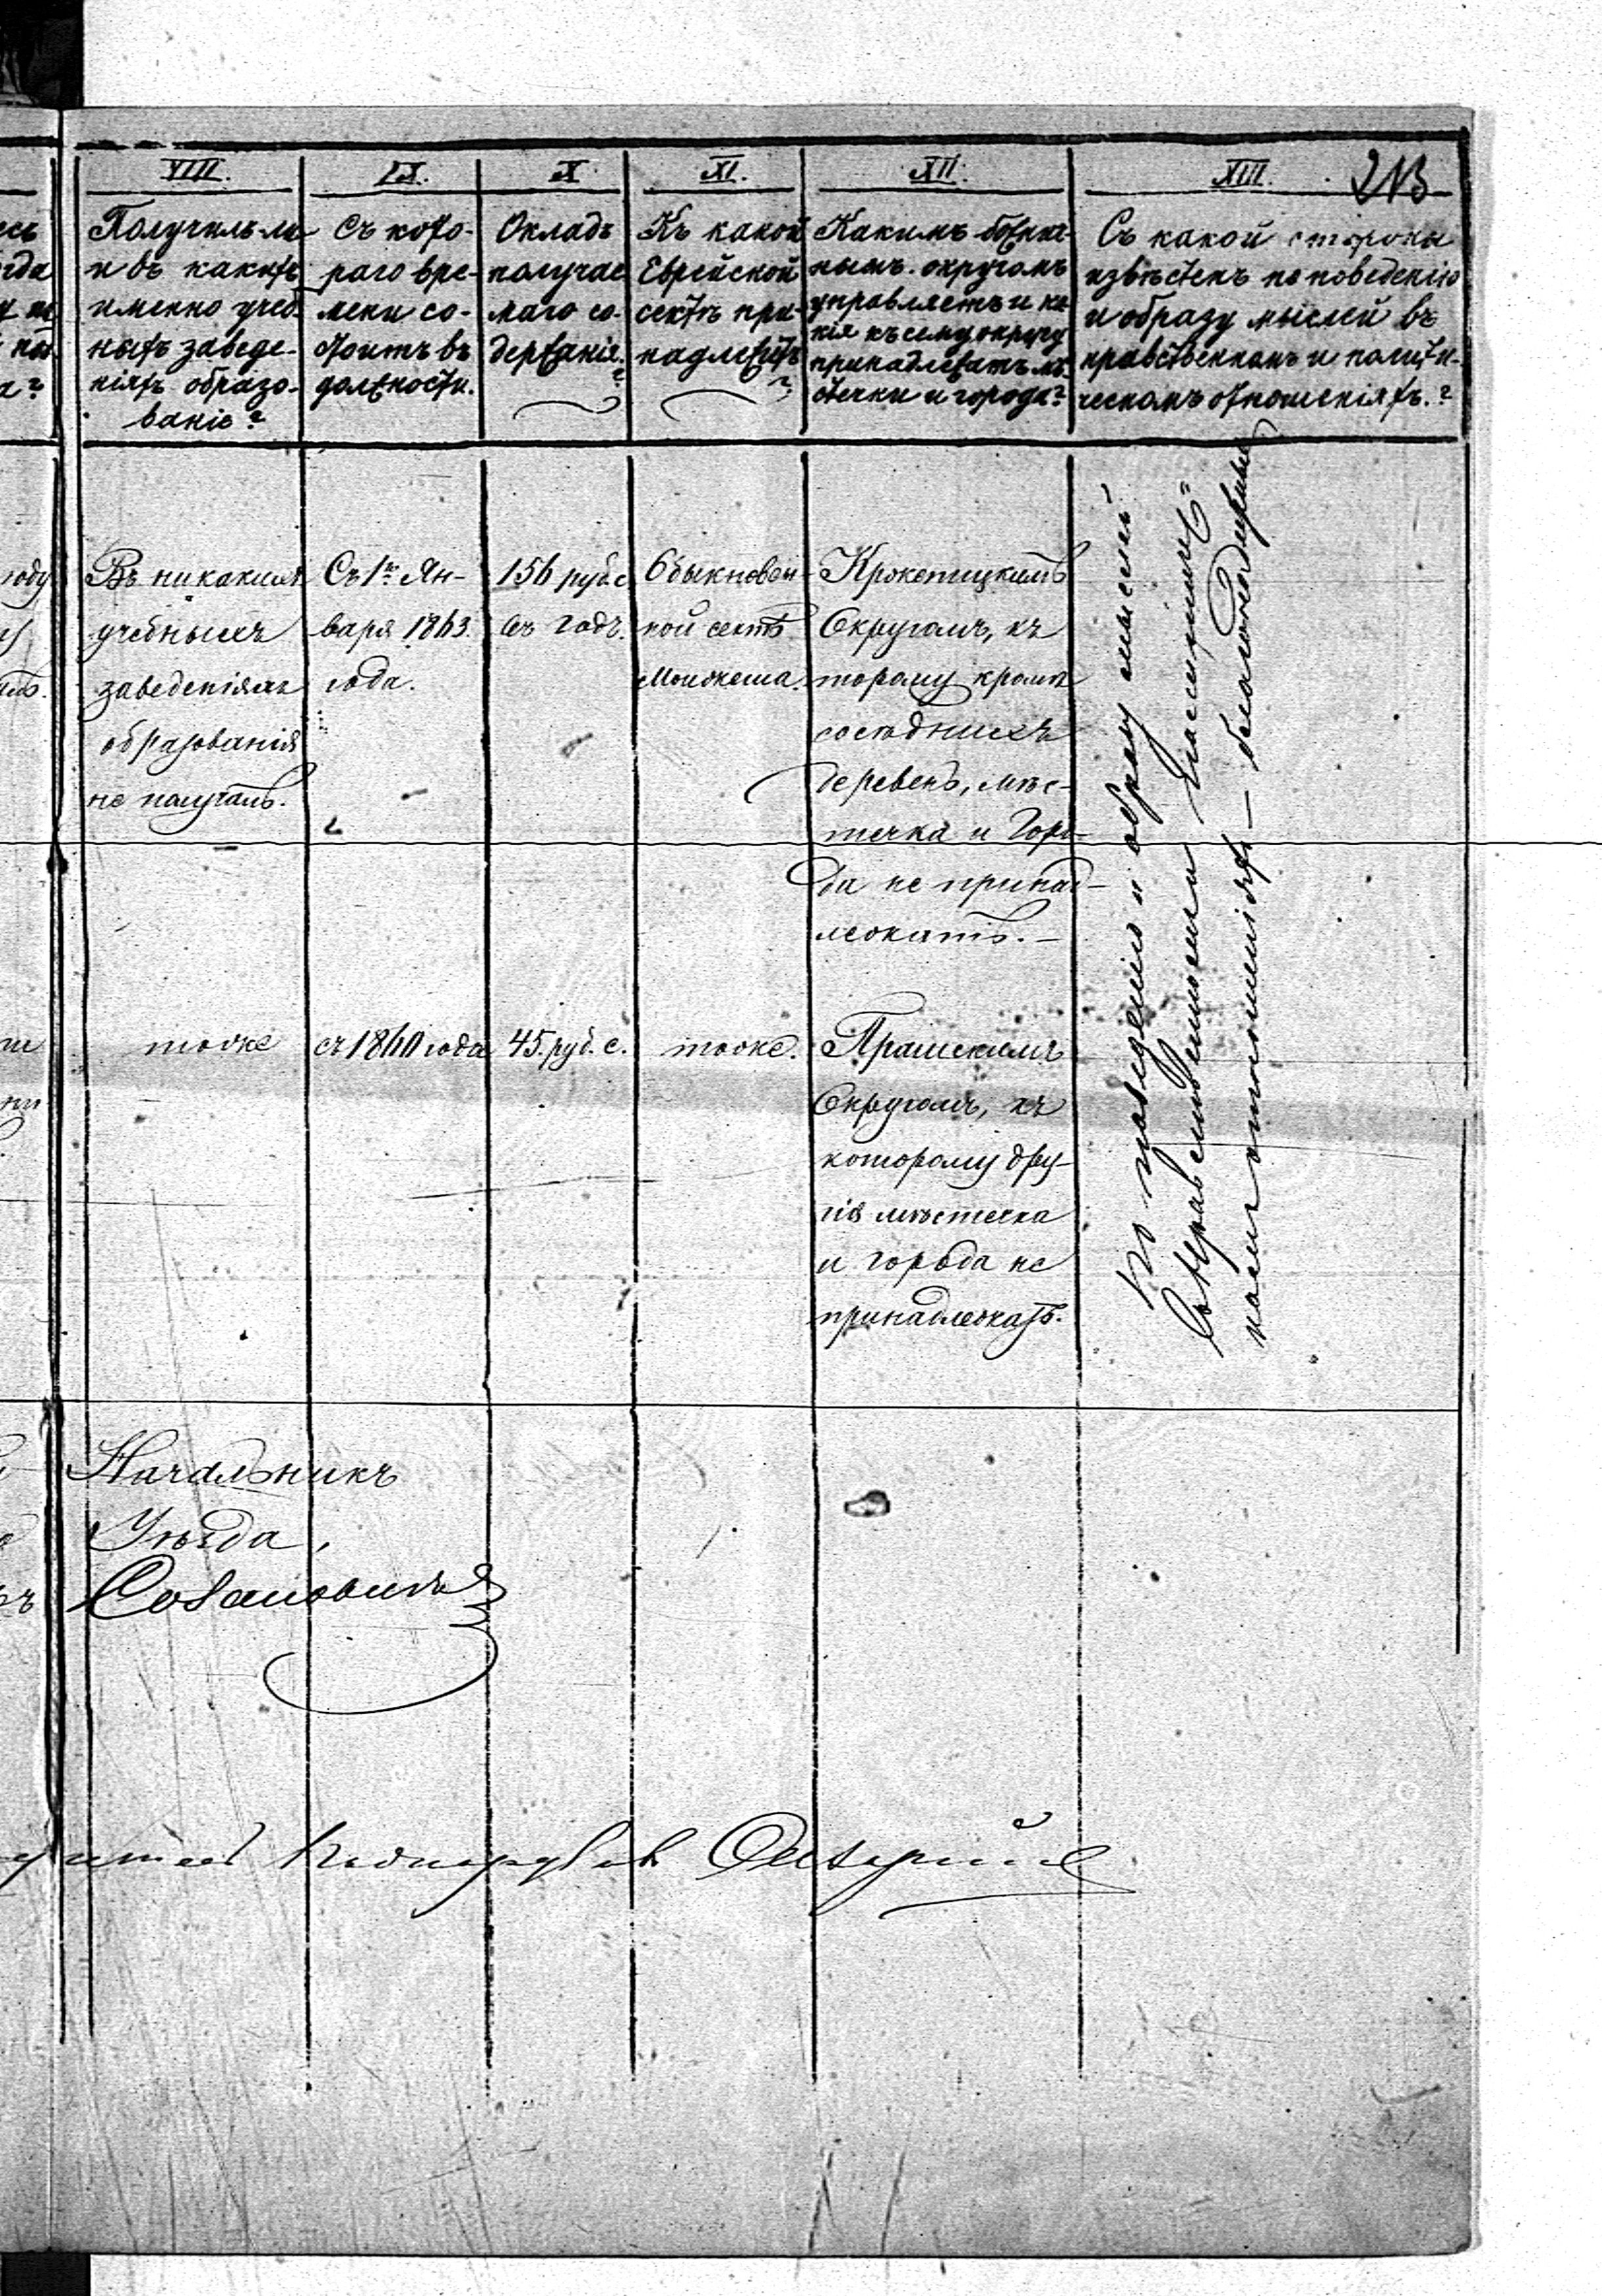 VIII.
Получилъ-ли
и въ какихъ
именно учеб-
ныхъ заведе-
нiяхъ образо-
ванiе?
IX.
Съ кото-
раго вре-
мени со-
стоитъ въ
должности.
X.
Окладъ
получае
маго со-
держанiя.
?
XI.
Къ какой
Еврейской
сектѣ при-
надлежитъ
?
XII.
Какимъ божнич-
нымъ округомъ
управляетъ и ка
кiя къ сему округу
принадлежатъ мѣ-
стечки и города?
XIII.
213
Съ какой стороны
извѣстенъ по поведенiю
и образу мыслей въ
нравственномъ и полити-
ческомъ отношенiяхъ.?
Въ никакихъ
учебныхъ
заведенiяхъ
образованiя
не получалъ.
Съ 1го Ян-
варя 1863.
года.
156 руб с
въ годъ.
Обыкновен-
ной сектѣ
Моижеша.
Округомъ, къ
торому кромѣ
сосѣднихъ
деревень, мѣс-
течка и Горо-
да не принад-
лежатъ.—
По поведенiю и образу мыслей
въ Нравственномъ и Политиче-
скомъ отношенiяхъ — благонадежны
тоже
съ 1860 года
45. руб. с.
тоже.
Прашскимъ
Округомъ, къ
которому дру-
гiя мѣстечка
и города не
принадлежатъ.
Начальникъ
Уѣзда,